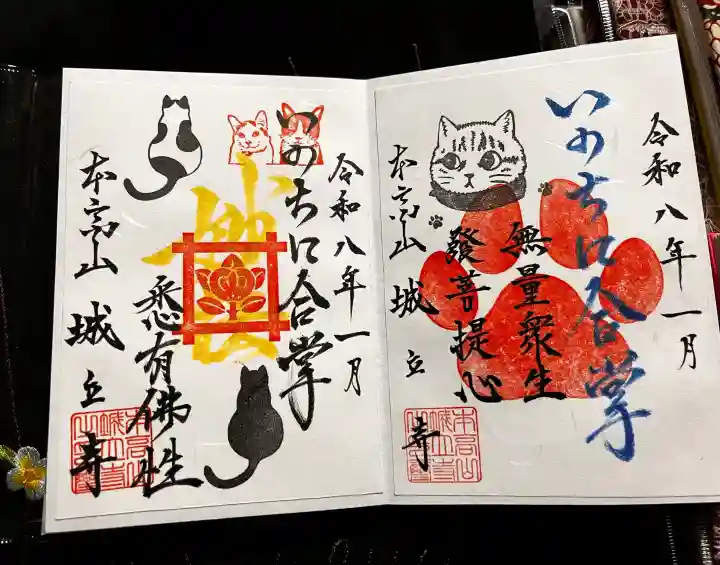 いのちに合掌
令和八年一月
無量衆生
發菩提心
本高山
城立寺
令和八年一月
いのちに合掌
悉有佛性
本高山
城立寺